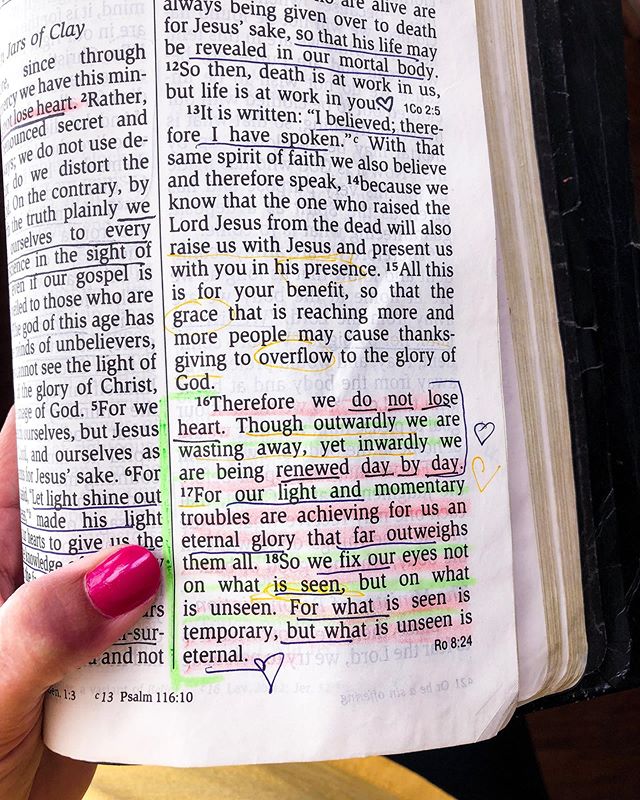 Jars of Clay
since through
we have this min-
lose heart. 2Rather,
secret and
we do not use de-
do we distort the
On the contrary, by
the truth plainly we
to every
in the sight of
if our gospel is
to those who are
god of this age has
of unbelievers,
see the light of
glory of Christ,
of God. 5For we
ourselves, but Jesus
and ourselves as
for Jesus' sake. 6For
"Let light shine out
made his light
to give us the
and not
are alive are
always being given over to death
for Jesus' sake, so that his life may
be revealed in our mortal body.
12So then, death is at work in us,
but life is at work in you. 1Co 2:5
13It is written: "I believed; there-
fore I have spoken."c With that
same spirit of faith we also believe
and therefore speak, 14because we
know that the one who raised the
Lord Jesus from the dead will also
raise us with Jesus and present us
with you in his presence. 15All this
is for your benefit, so that the
grace that is reaching more and
more people may cause thanks-
giving to overflow to the glory of
God.
16Therefore we do not lose
heart. Though outwardly we are
wasting away, yet inwardly we
are being renewed day by day.
17For our light and momentary
troubles are achieving for us an
eternal glory that far outweighs
them all. 18So we fix our eyes not
on what is seen, but on what
is unseen. For what is seen is
temporary, but what is unseen is
eternal. Ro 8:24
1:3 c13 Psalm 116:10